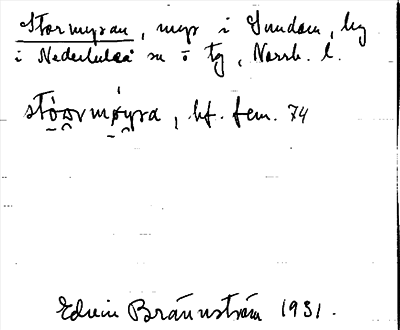 Stormyran, myr i Sundom, by
i Nederluleå sn o tg, Norrb. l.
stóωrmǿyra, bf. fem. 74
Edvin Brännström 1931.